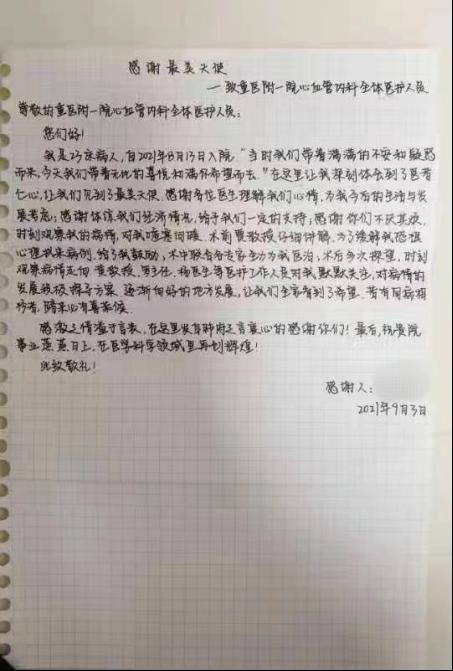 感谢最美天使
——致重医附一院心血管内科全体医护人员
尊敬的重医附一院心血管内科全体医护人员:
您们好!
我是23床病人,自2021年8月13日入院."当时我们带着满满的不安和疑惑
而来,今天我们带着无比的喜悦和满怀希望而去."在这里让我深刻体会到了医者
仁心,让我们见到了最美天使.感谢各位医生理解我们心情,为我今后的生活与发
展考虑;感谢体谅我们经济情况,给予我们一定的支持;感谢你们不厌其烦,
时刻观察我的病情,对我嘘寒问暖.术前黄教授仔细讲解,为了缓解我恐惧
心理找来病例,给予我鼓励,术中联合各专家全力为我医治,术后多次探望,时刻
观察病情走向.黄教授,男主任,杨医生等医护工作人员对我默默关注,对病情的
发展积极探寻方案.逐渐向好的地方发展,让我们全家看到了希望.若有同病相
怜者,随来必有喜茉候.
感激之情溢于言表,在这里发自肺腑之言衷心的感谢你们!最后,祝贵院
事业蒸蒸日上,在医学科学领域里再创辉煌!
此致敬礼!
感谢人:
2021年9月3日